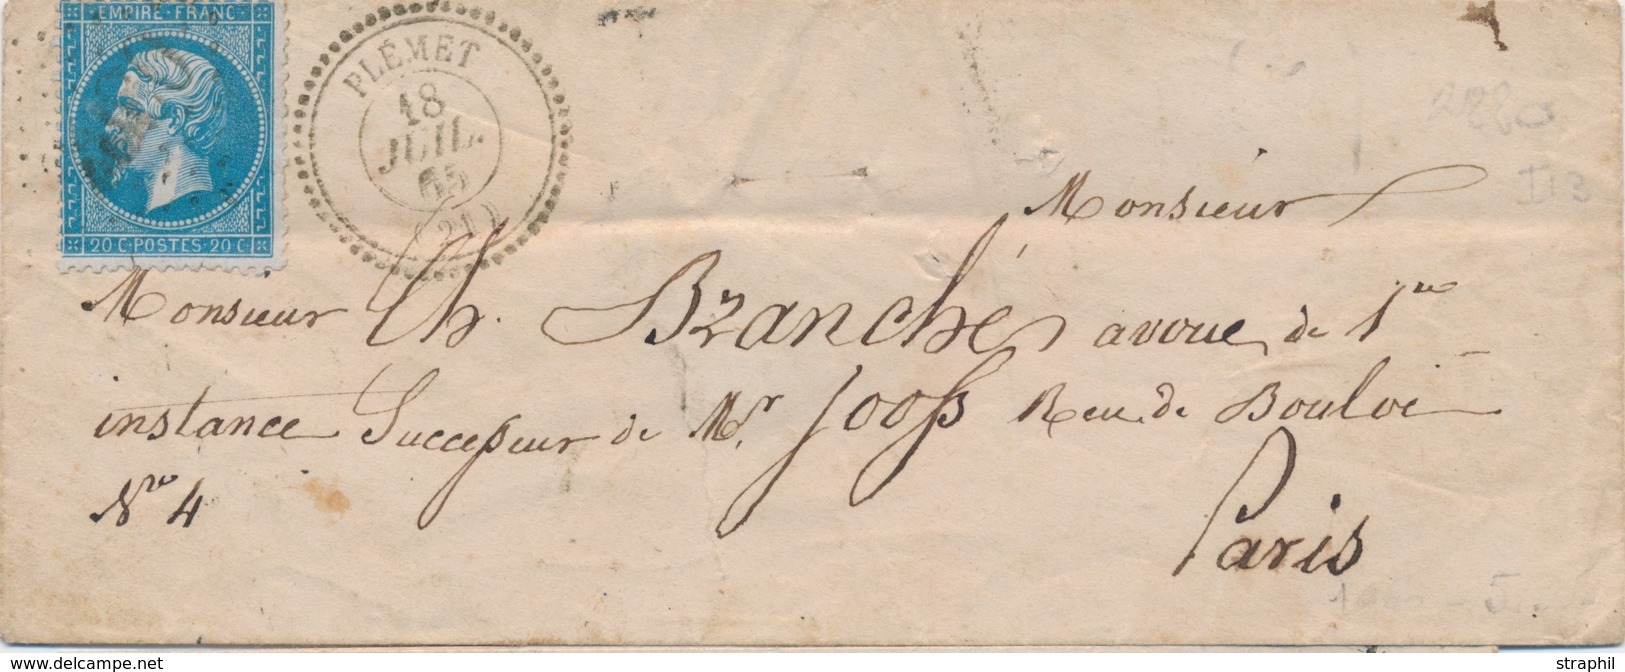 EMPIRE·FRANC
20 C·POSTES·20 C
PLÉMET
18
JUIL.
65
(21)
Monsieur
Monsieur Ch. Branché avoué de 1re
instance Successeur de Mr. Jooss Reu de Bouloi
No 4
Paris
II 3
delcampe.net
straphil